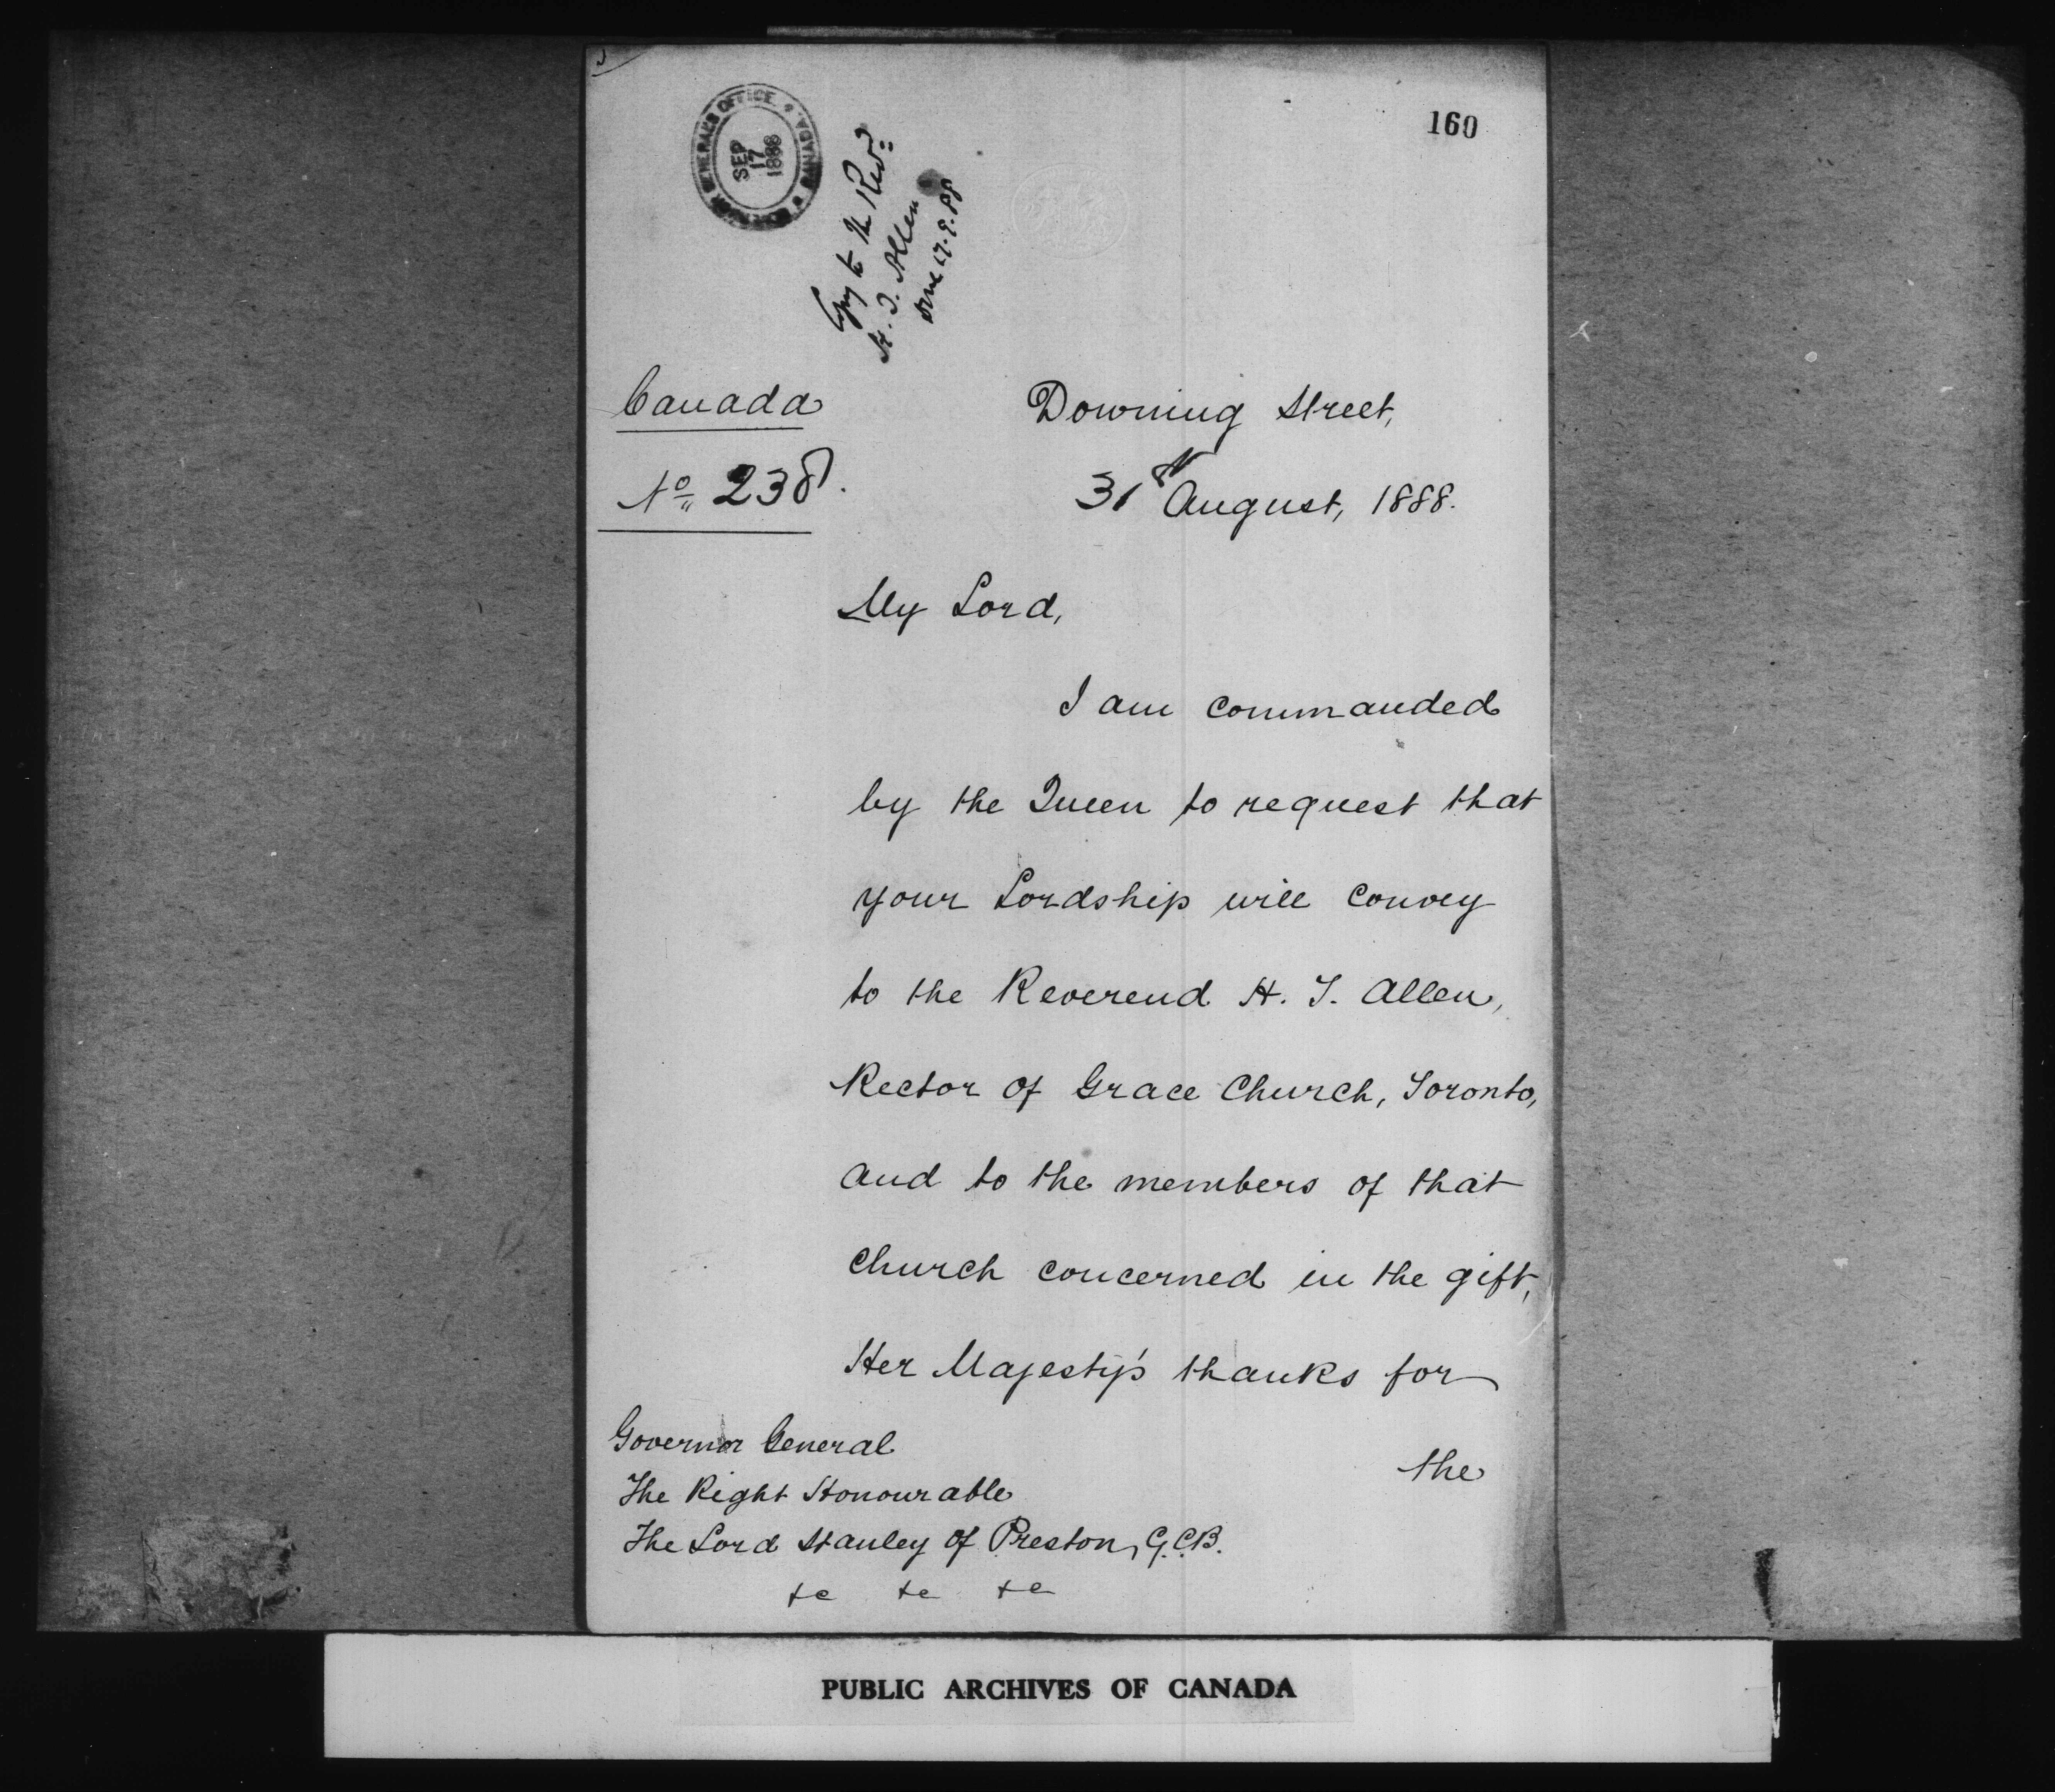 160
GOVERNOR GENERAL'S OFFICE * CANADA *
SEP
17
1888
Copy to the Revd
H. T. Allen
done 17.9.88
Canada
No 238.
Downing Street,
31st August, 1888.
My Lord,
I am commanded
by the Queen to request that
your Lordship will convey
to the Reverend H. T. Allen,
Rector of Grace Church, Toronto,
and to the members of that
Church concerned in the gift,
Her Majesty's thanks for
the
Governor General
The Right Honourable
The Lord Stanley of Preston, G.C.B.
&c &c &c
PUBLIC ARCHIVES OF CANADA